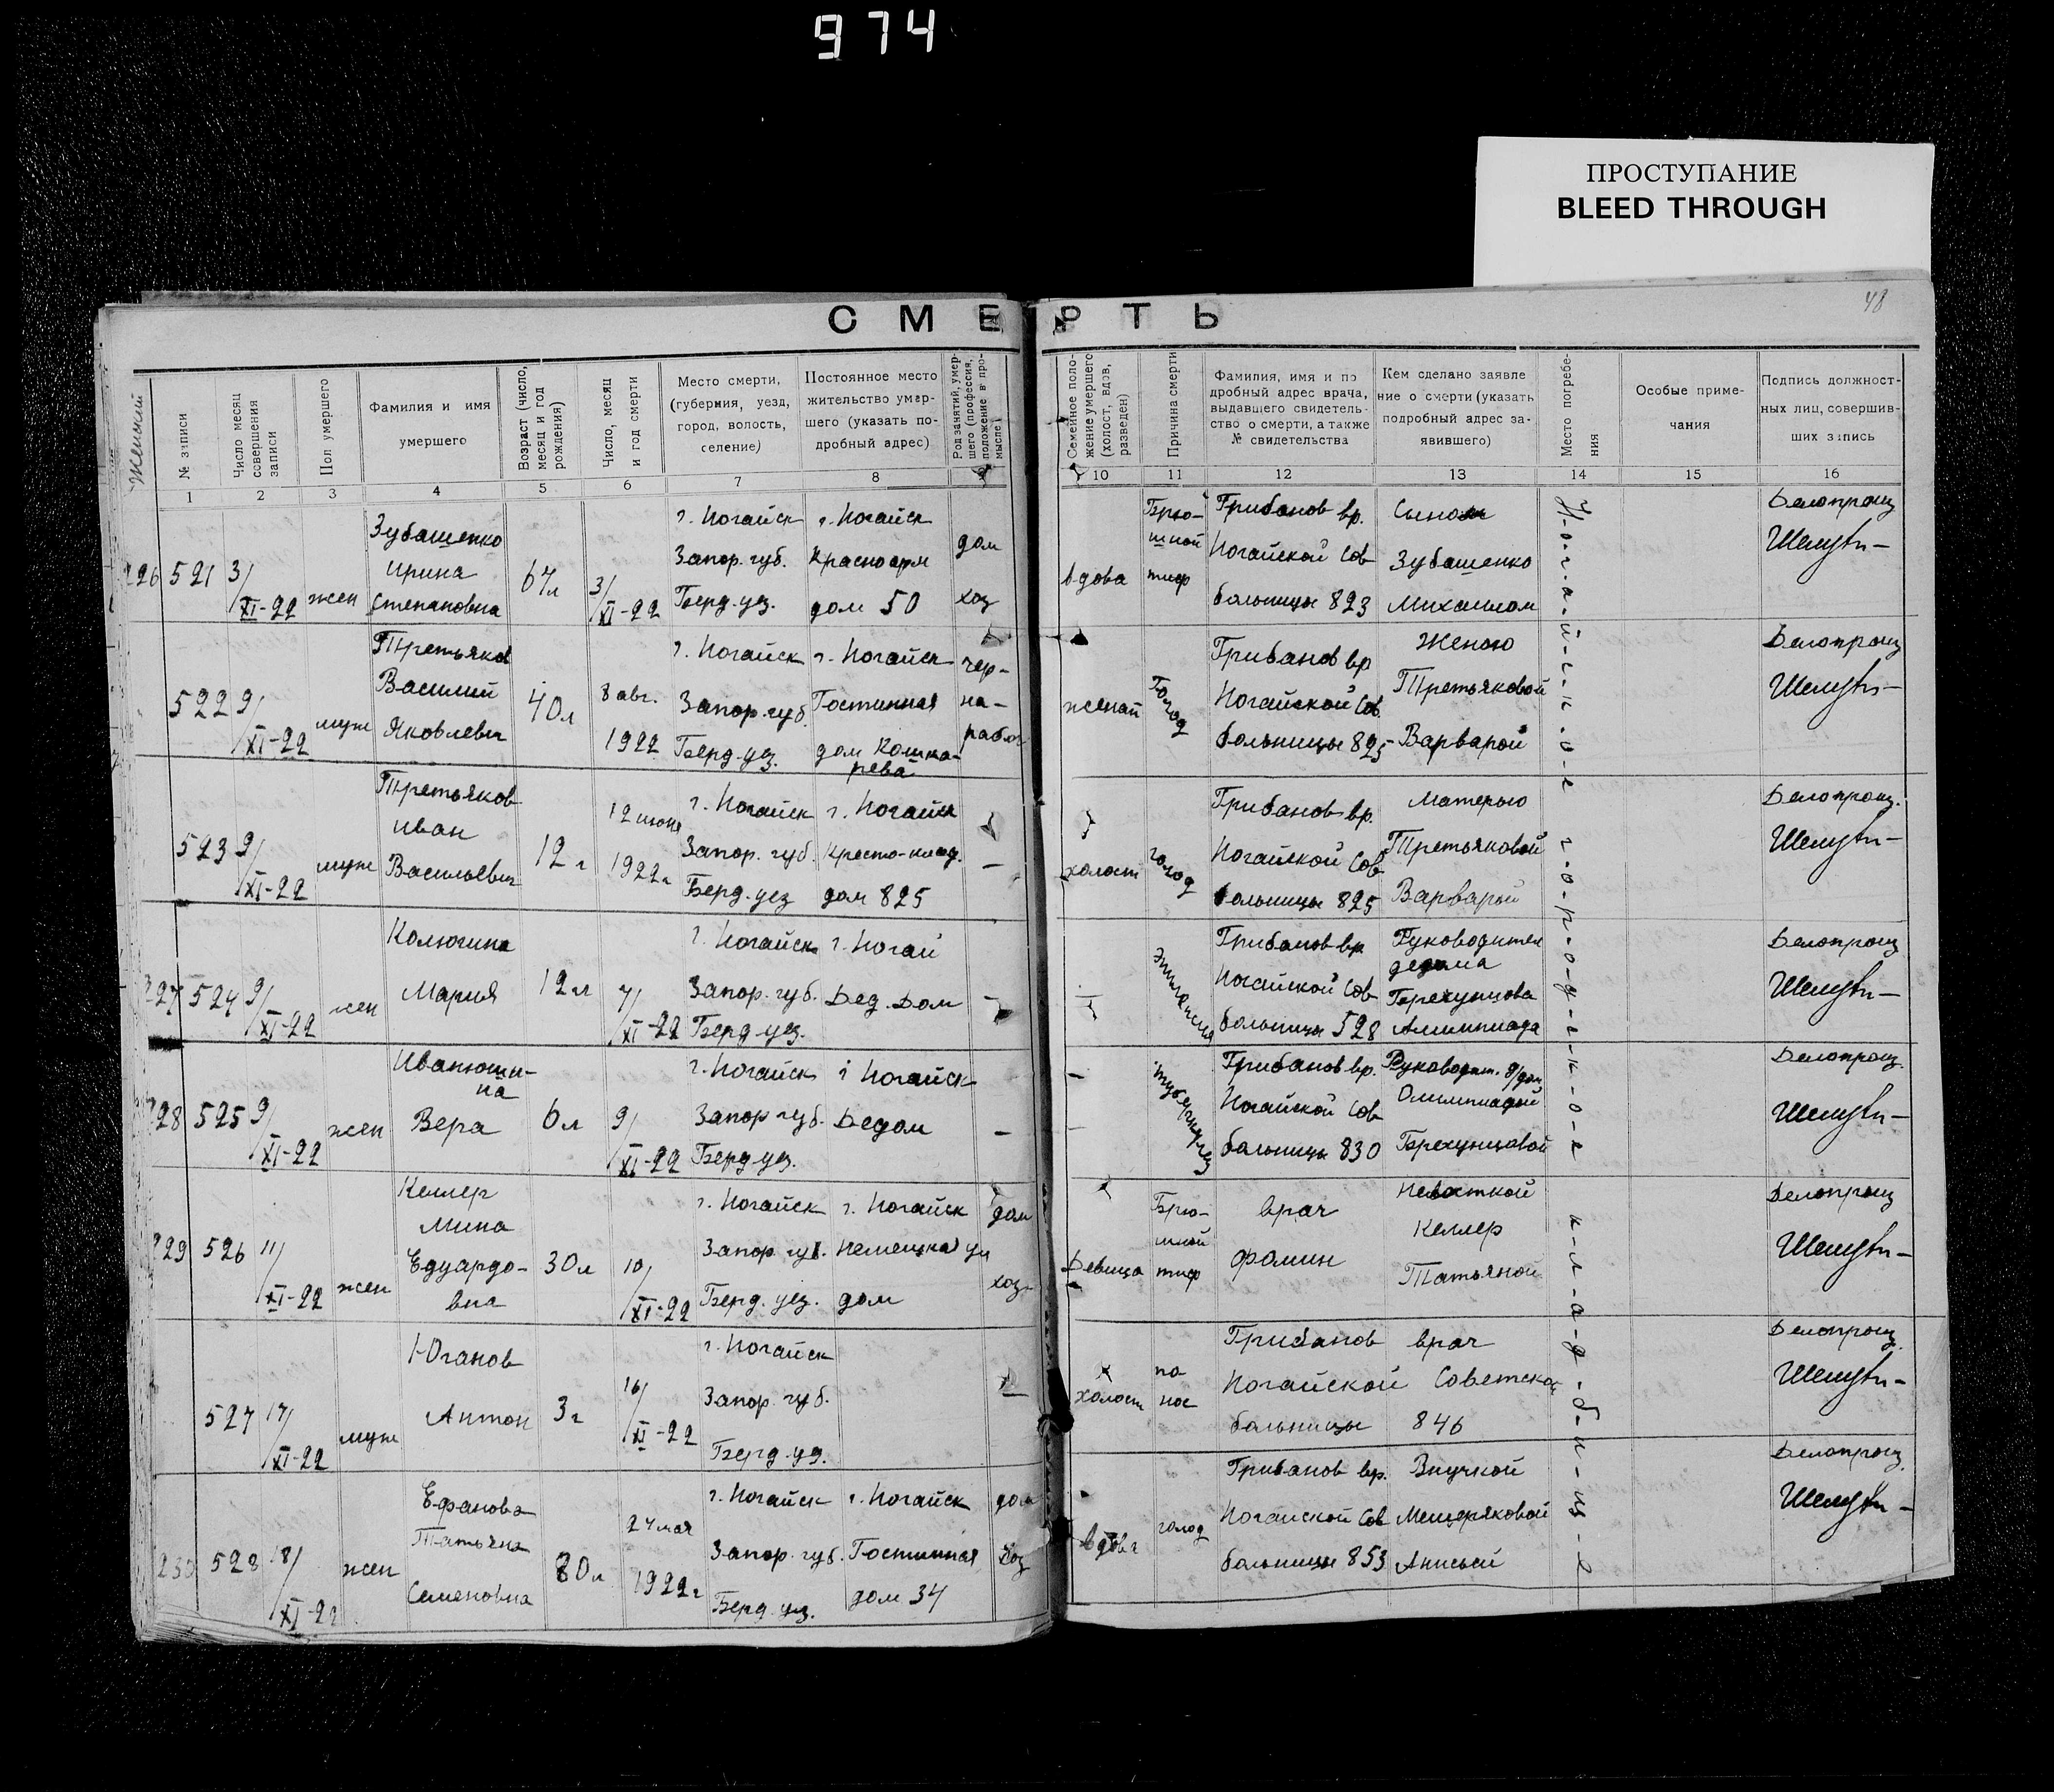 974
ПРОСТУПАНИЕ
BLEED THROUGH
48
СМЕРТЬ
Женский
№ записи
Число месяц совершения записи
Пол умершего
Фамилия и имя умершего
Возраст (число, месяц и год рождения)
Число, месяц и год смерти
Место смерти, (губерния, уезд, город, волость, селение)
Постоянное место жительство умершего (указать подробный адрес)
Род занятий, умершего (профессия, положение в промысле)
Семейное положение умершего (холост, вдов, разведен)
Причина смерти
Фамилия, имя и подробный адрес врача, выдавшего свидетельство о смерти, а также № свидетельства
Кем сделано заявление о смерти (указать подробный адрес заявившего)
Место погребения
Особые примечания
Подпись должностных лиц, совершивших запись
1 2 3 4 5 6 7 8 9 10 11 12 13 14 15 16
226 521 3/XI-22 жен
Зубашенко
Ирина
Степановна
67л 3/XI-22
г. Ногайск
Запор. губ.
Берд. уез.
г. Ногайск
Красноарм
дом 50
дом
хоз
вдова
Брю-
шной
тиф
Грибанов вр.
Ногайской Сов
больницы 823
Сыном
Зубашенко
Михаилом
Делопроиз
522 9/XI-22 муж
Третьяков
Василий
Яковлевич
40л
8 авг.
1922
г. Ногайск
Запор. губ.
Берд. уез.
г. Ногайск
Гостинная
дом Кошка-
рева
чер-
на-
рабоч
женат
Голод
Грибанов вр
Ногайской Сов.
больницы 825
Женою
Третьяковой
Варварой
Делопроиз
523 9/XI-22 муж
Третьяков
Иван
Васильевич
12 г
12 июня
1922г
г. Ногайск
Запор. губ.
Берд. уез
г. Ногайск
дом 825
—
холост
голод
Грибанов вр.
Ногайской Сов
больницы 825
Матерью
Третьяковой
Варварой
Делопроиз.
227 524 9/XI-22 жен
Колюгина
Мария
12 л
7/XI-22
г. Ногайск
Запор. губ.
Берд. уез.
г. Ногай
Дед. Дом
—
эпилепсия
Грибанов вр
Ногайской Сов
больницы 528
Руководител
дедома
Брехунцова
Алимпиада
Делопроиз
228 525 9/XI-22 жен
Иванюши-
на
Вера
6л 9/XI-22
г. Ногайск
Запор губ.
Берд. уез.
г Ногайск
Дедом
—
туберкулез
Грибанов вр.
Ногайской Сов
больницы 830
Руководит. д/дом
Олимпиадой
Брехунцовой
Делопроиз.
229 526 11/XI-22 жен
Келлер
Мина
Едуардо-
вна
30л 10/XI-22
г. Ногайск
Запор. губ.
Берд. уез.
г. Ногайск
Немецкая ул
дом
дом
хоз
Девица
Брю-
шной
тиф
врач
Фомин
Невесткой
Келлер
Татьяной
Делопроиз
527 17/XI-22 муж
Юганов
Антон
3г 16/XI-22
г. Ногайск
Запор. губ.
Берд. уз.
—
холост
по-
нос
Грибанов врач
Ногайской Советской
больницы 846
Делопроиз.
230 528 18/XI-22 жен
Ефанова
Татьяна
Семеновна
80л
27 мая
1922г
г. Ногайск
Запор. губ.
Берд. уз.
г. Ногайск
Гостинная
дом 34
дом
хоз
вдова
голод
Грибанов вр.
Ногайской Сов
больницы 853
Внучкой
Мещеряковой
Анисьей
Делопроиз.
Н-о-г-а-й-с-к-о-е г-о-р-о-д-с-к-о-е к-л-а-д-б-и-щ-е